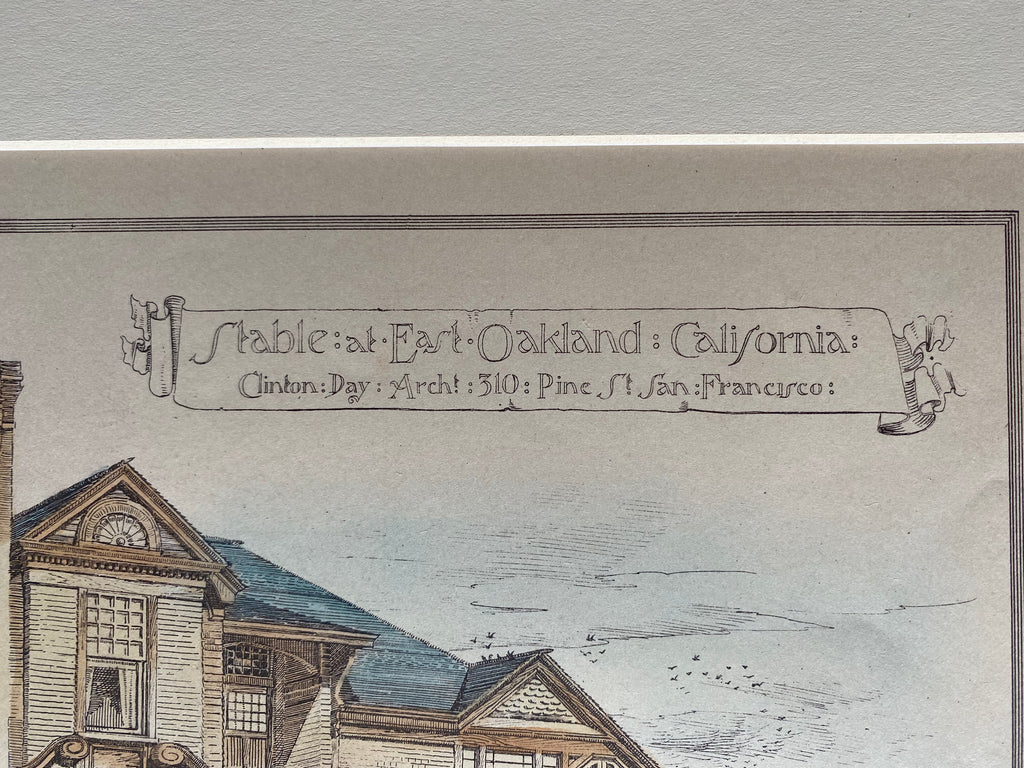 Stable : at · East · Oakland : California :
Clinton : Day : Archt : 310 : Pine St San : Francisco :